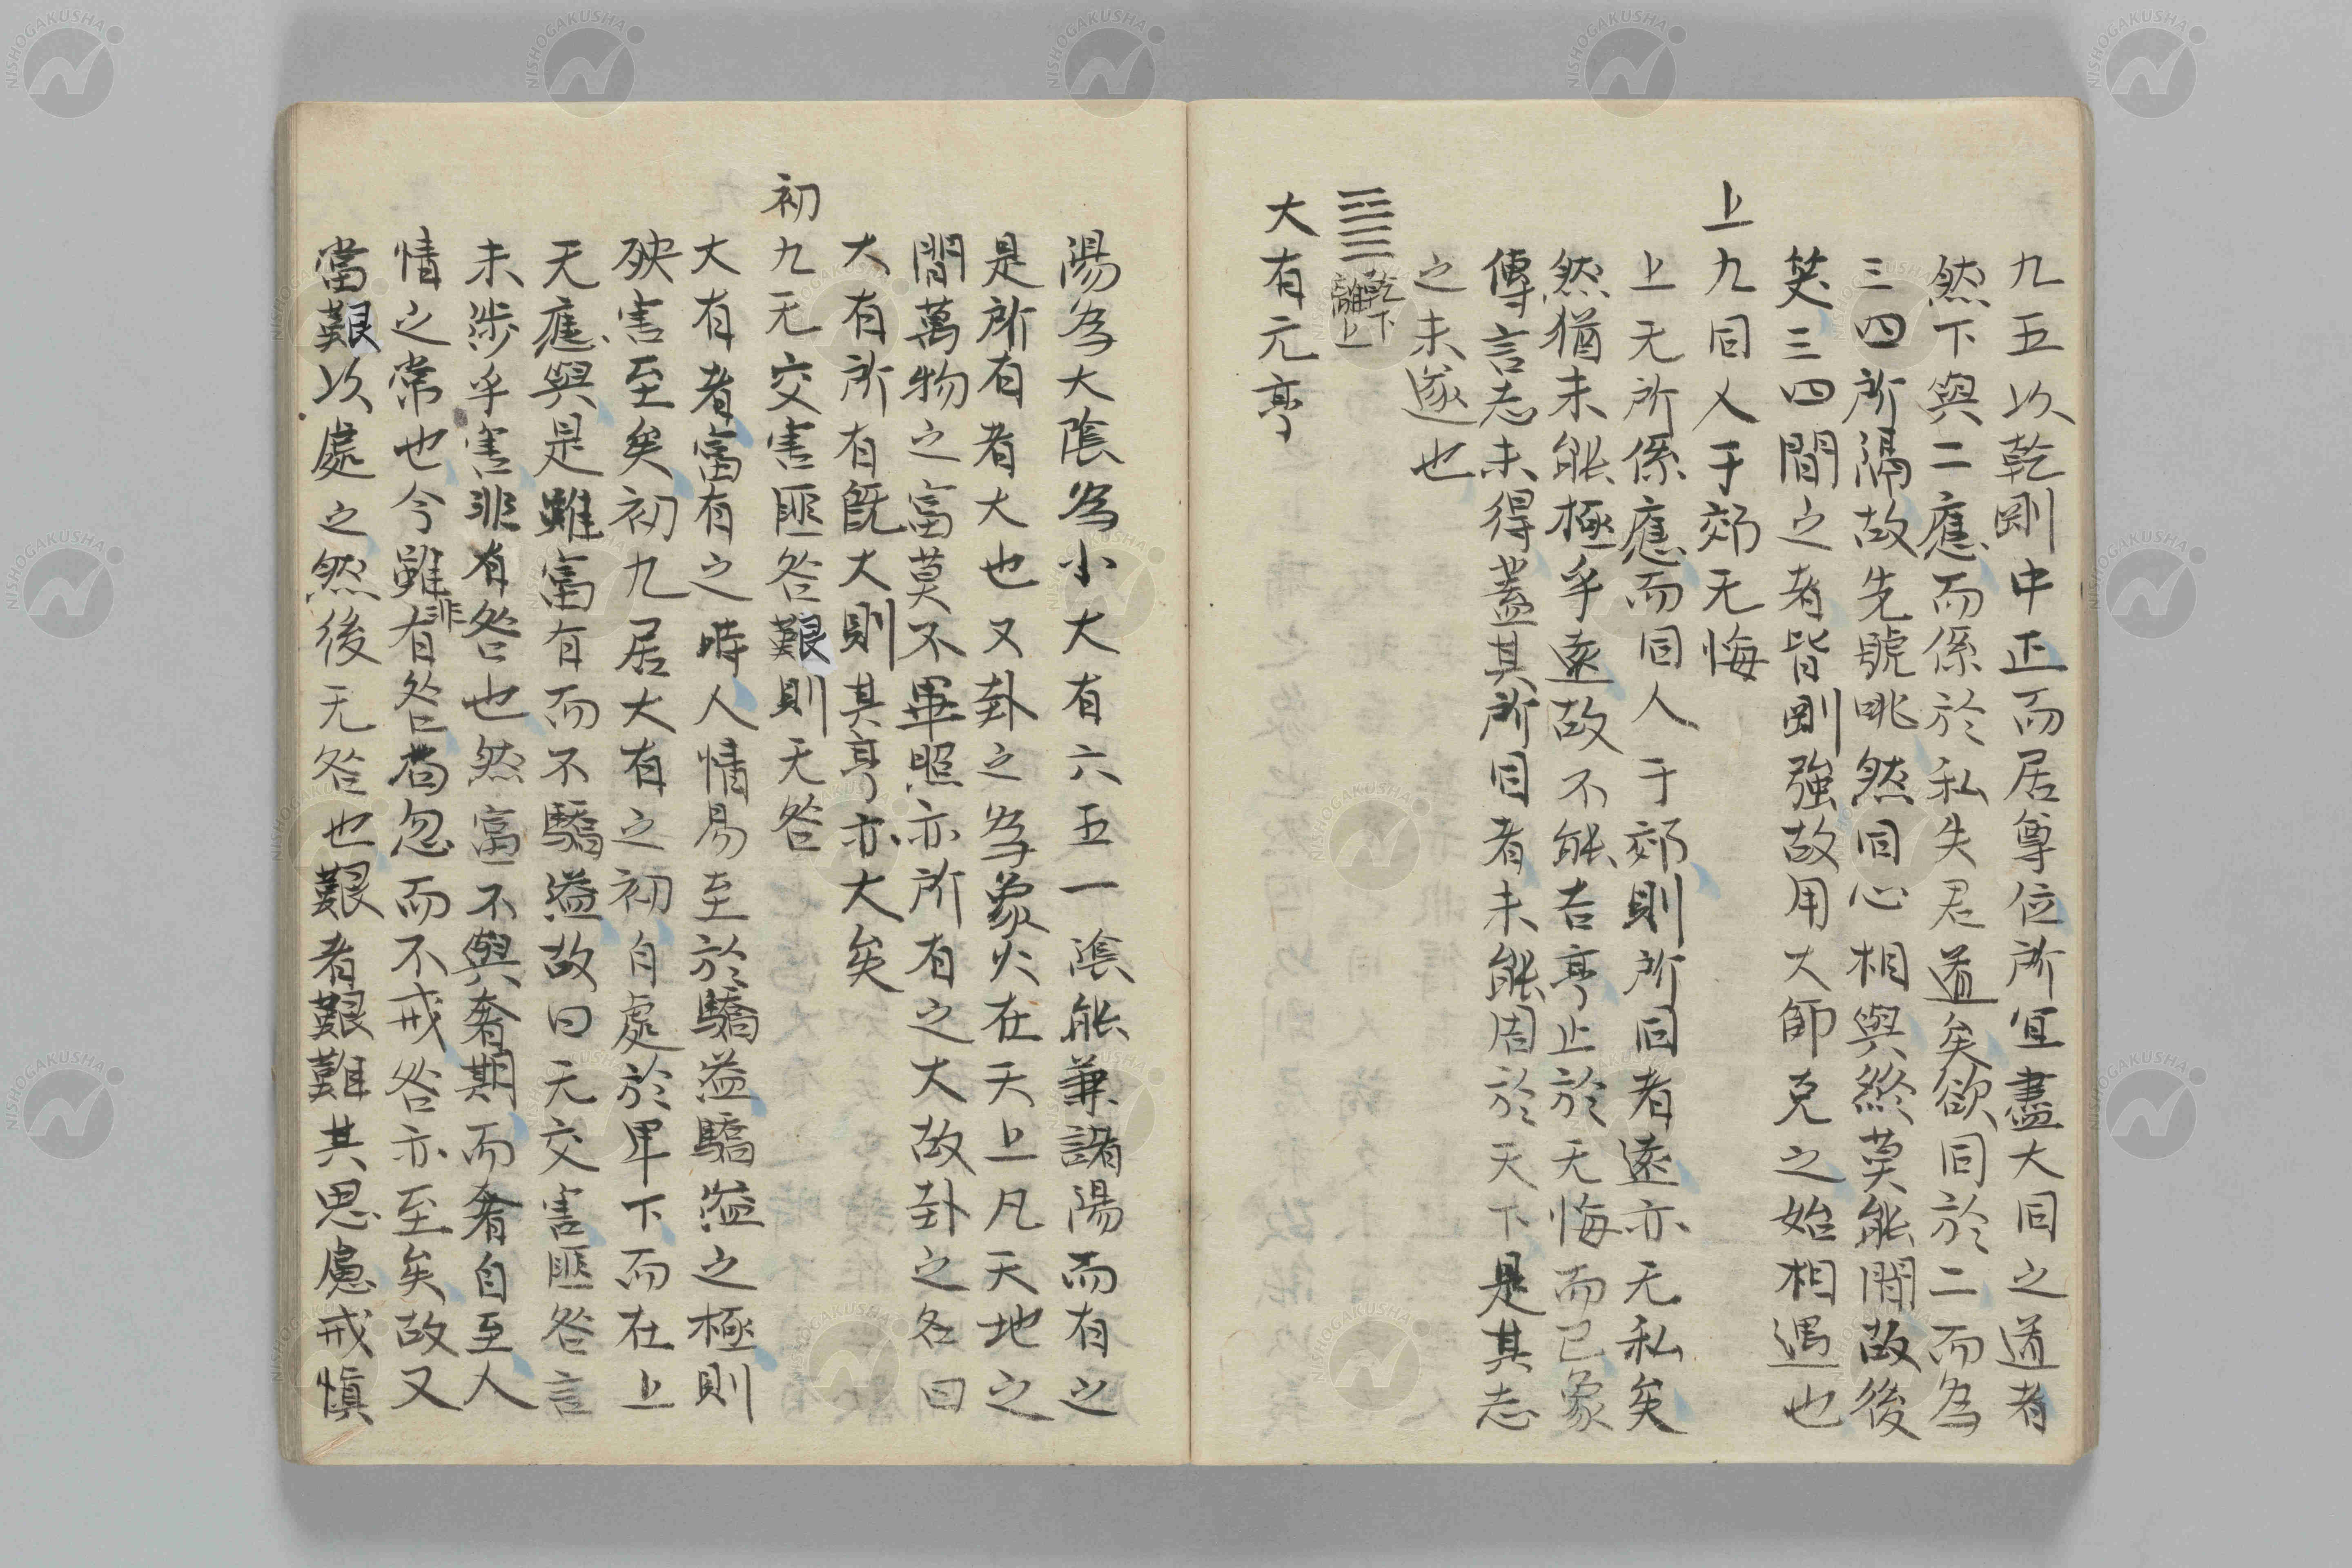 九五以乾剛中正而居尊位所宜盡大同之道者
然下與二應而係於私失君道矣欲同於二而為
三四所隔故先號咷然同心相與終莫能間故後
笑三四間之者皆剛強故用大師克之始相遇也
上九同人于郊无悔
上无所係應而同人于郊則所同者遠亦无私矣
然猶未能極乎遠故不能吉亨止於无悔而已象
傳言志未得蓋其所同者未能周於天下是其志
之未遂也
䷍乾下離上
大有元亨
陽為大陰為小大有六五一陰能兼諸陽而有之
是所有者大也又卦之為象火在天上凡天地之
間萬物之富莫不畢照亦所有之大故卦之名曰
大有所有既大則其亨亦大矣
初九无交害匪咎艱則无咎
大有者富有之時人情易至於驕溢驕溢之極則
殃害至矣初九居大有之初自處於卑下而在上
无應與是雖富有而不驕溢故曰无交害匪咎言
未涉乎害非有咎也然富不與奢期而奢自至人
情之常也今雖非有咎苟忽而不戒咎亦至矣故又
當艱以處之然後无咎也艱者艱難其思慮戒慎
NISHOGAKUSHA